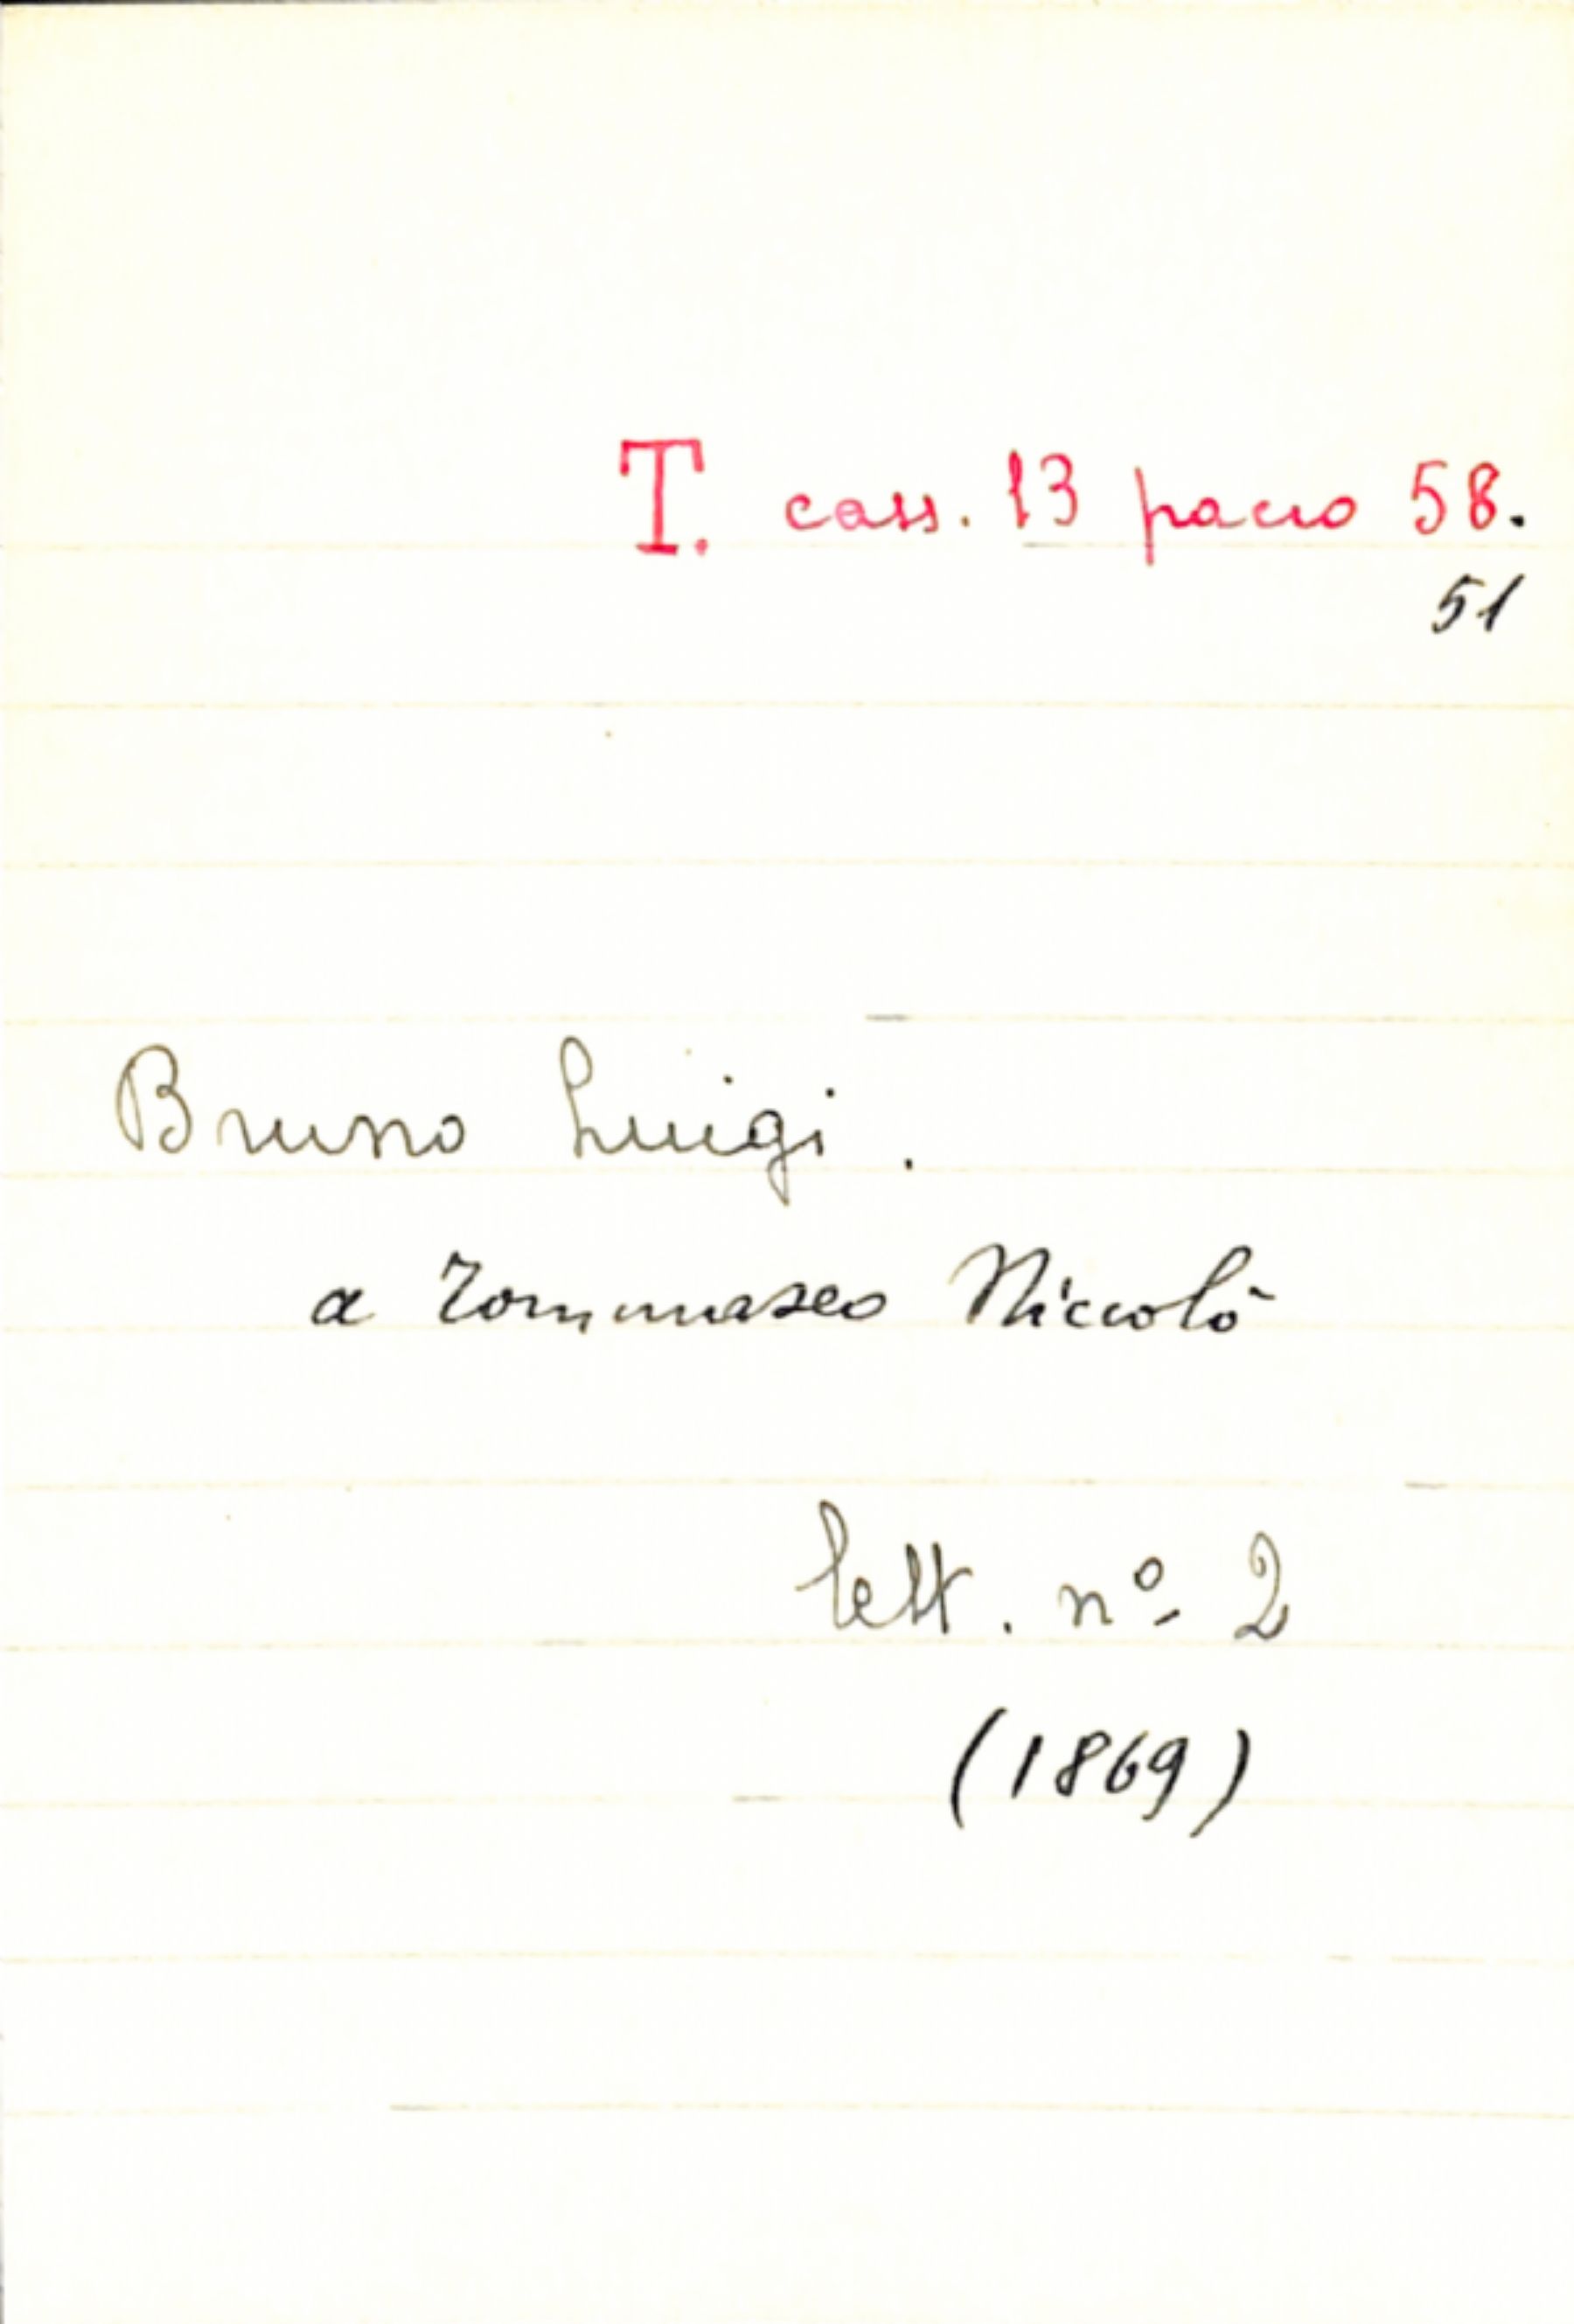 T. cass. 13 pacco 58.
51
Bruno Luigi.
a Tommaseo Niccolò
lett. nº 2
(1869)